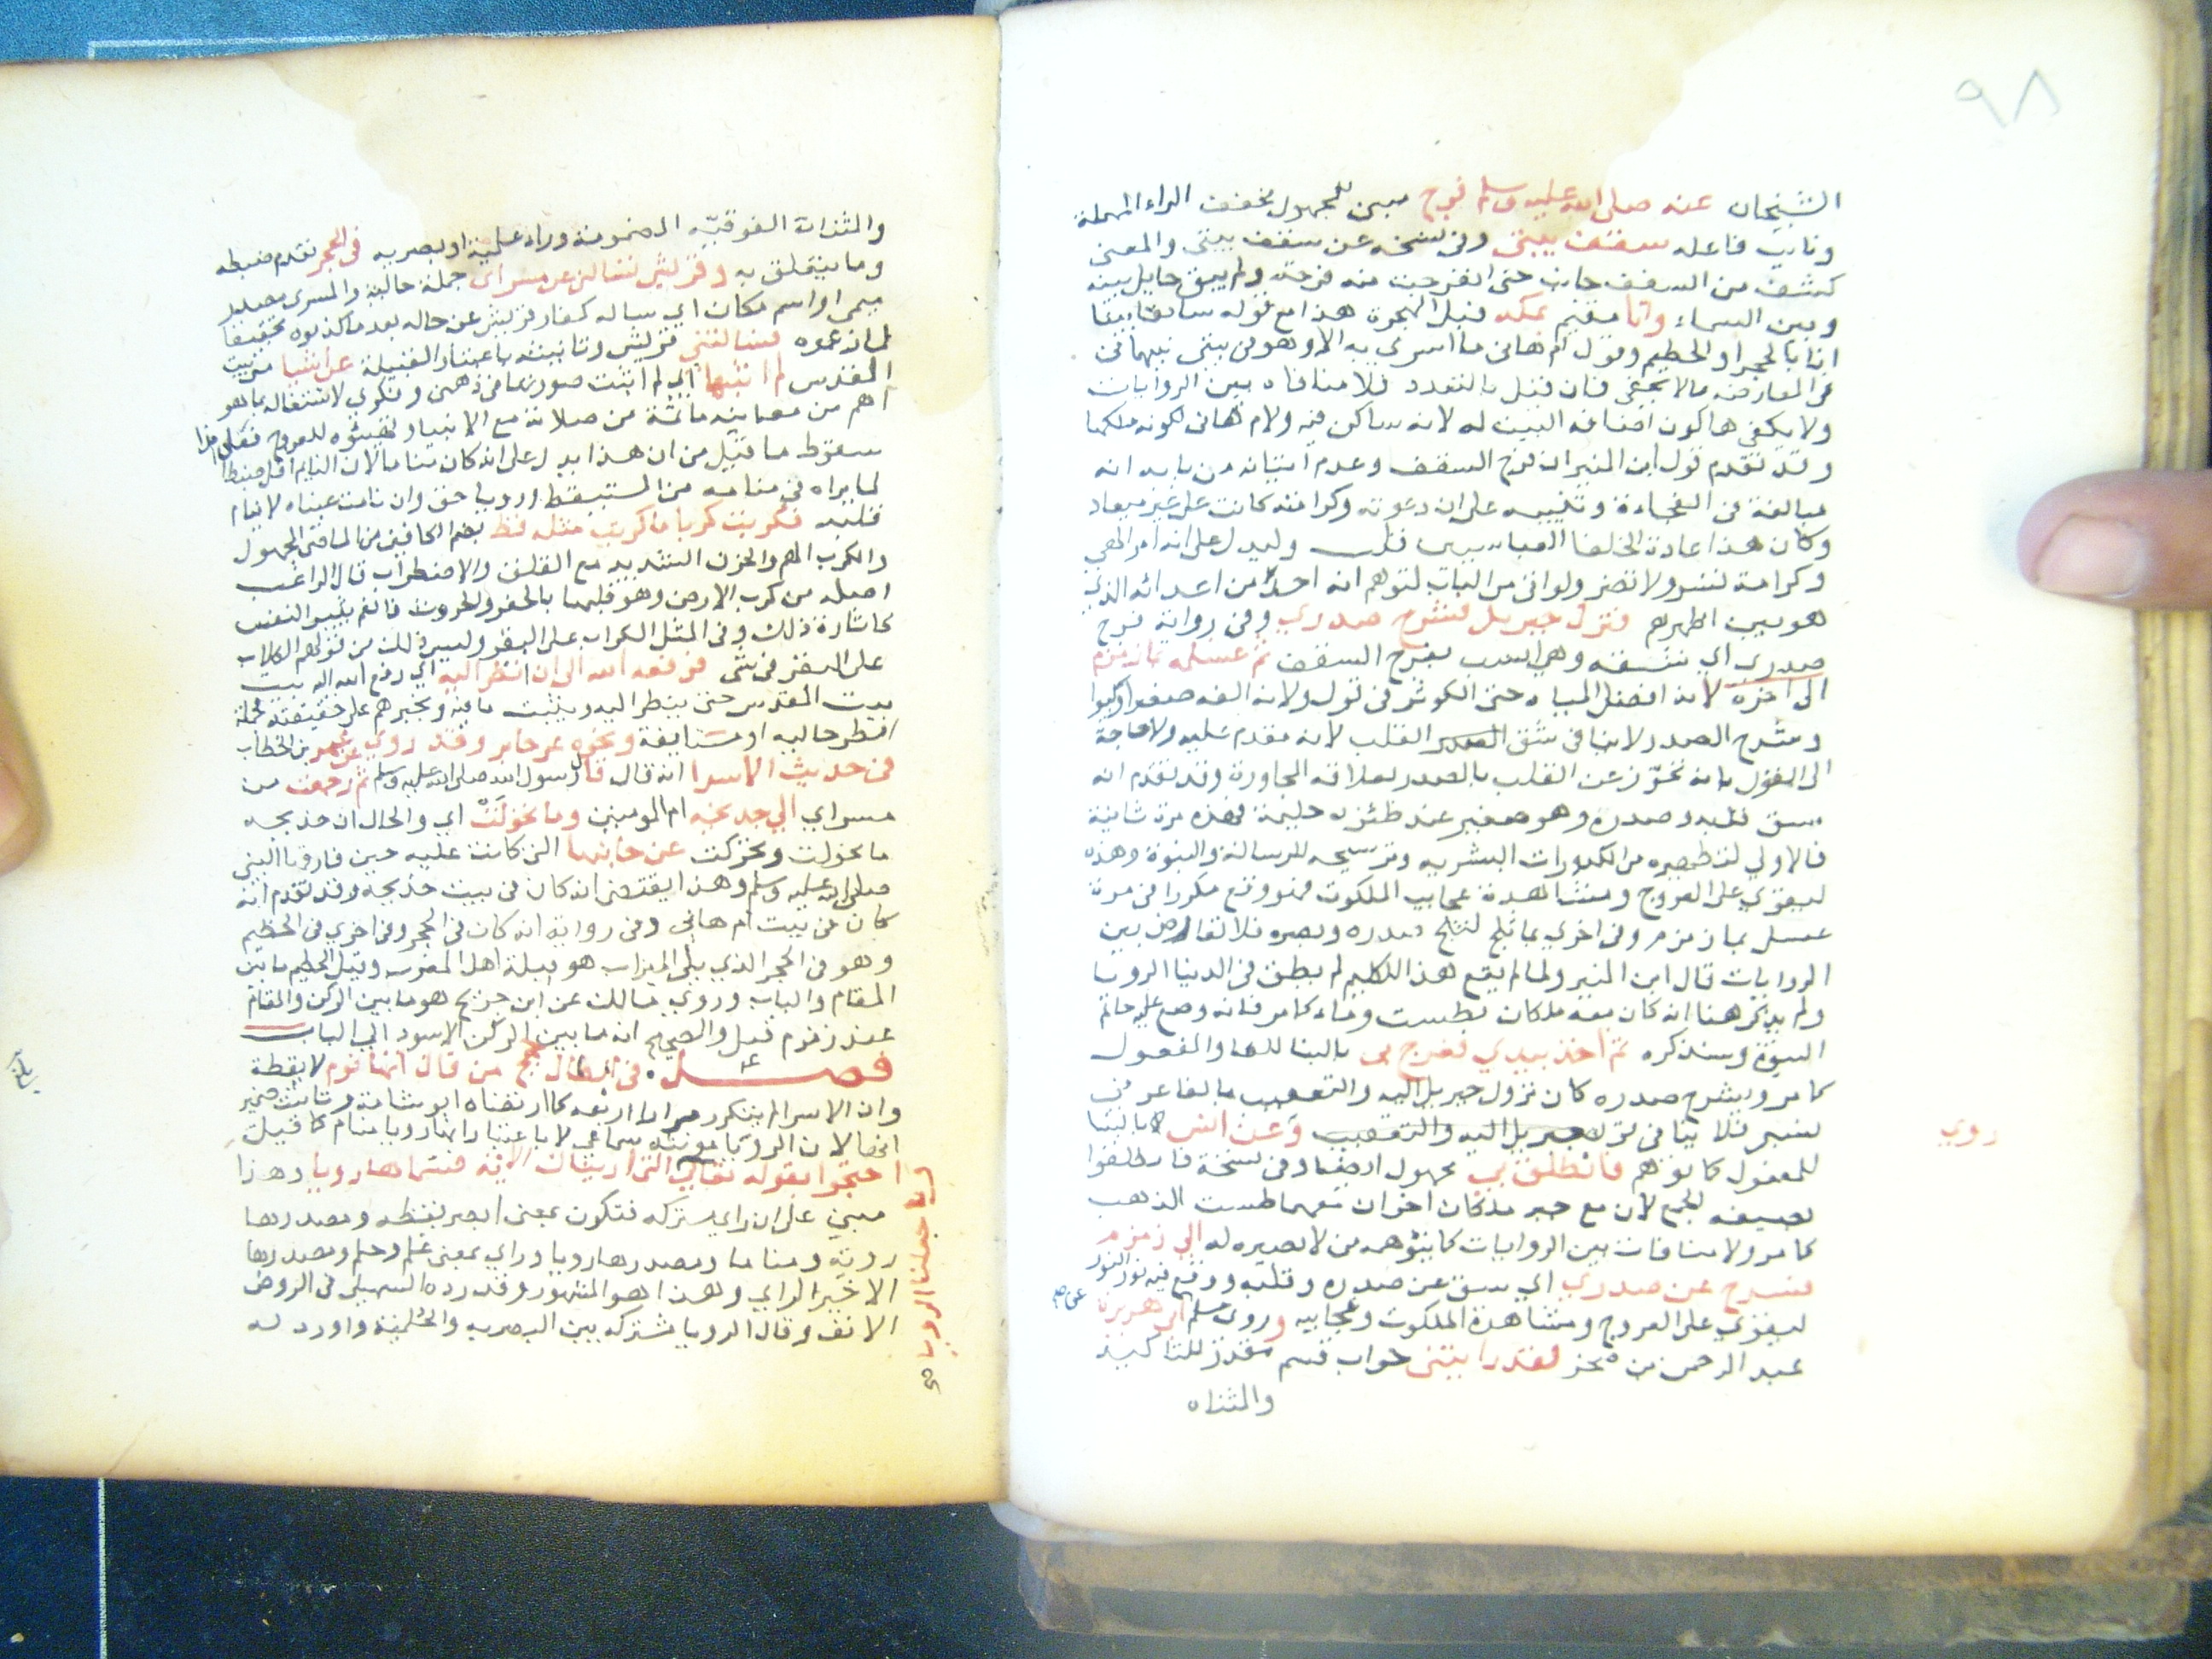 ٩٨
الشيخان عنه صلى الله عليه وسلم فرج مبني للمجهول مخفف الراء المهملة
ونائب فاعله سقف بيتي وفي نسخة عن سقف بيتي والمعنى
كشف من السقف جانب حتى انفرجت منه فرجة ولم يبق حايل بينه
وبين السماء وانا مقيم بمكة قبل الهجرة هذا مع قوله سابقا بينا
انا بالحجر او الحطيم وقول ام هاني ما اسري به الا وهو في بيتي فيهما من
المعارضة مالا يخفى فان قيل بالتعدد فلا منافاة بين الروايات
ولا يكفي هنا كون اضافة البيت له لانه ساكن فيه ولام هاني لكونه ملكها
وقد تقدم قول ابن المنير ان فرج السقف وعدم اتيانه من بابه انه
مبالغة في الفجاءة وتنبيه على ان دعوته وكرامته كانت على غير ميعاد
وكان هذا عادة الخلفا العباسيين قلت وليدل على انه امر الهي
وكرامة تسر ولا تضر ولو اتى من الباب لتوهم انه احد من اعدائه الذي
هو بين اظهرهم فنزل جبريل فشرح صدري وفي رواية فرج
صدري اي شقه وهي انسب بفرج السقف ثم غسله بماء زمزم
الى اخره لانه افضل المياه حتى الكوثر في قول ولانه الفه صغيرا وكبيرا
وشرح الصدر لا ينافي شق القلب لانه مقدم عليه ولا حاجة
الى القول بانه تجوز عن القلب بالصدر لعلاقة المجاورة وقد تقدم انه
شق قلبه وصدره وهو صغير عند ظئره حليمة فهذه مرة ثانية
فالاولى لتطهيره من الكدورات البشرية وترشيحه للرسالة والنبوة وهذه
ليقوي على العروج ومشاهدة عجايب الملكوت فهو وقع مكررا في مرة
غسل بماء زمزم وفي اخرى بماء ثلج لثلج صدره وبصره فلا تعارض بين
الروايات قال ابن المنير ولما لم يقع هذا للكليم لم يطق في الدنيا الرويا
ولم يذكر هنا انه كان معه ملكان بطست وماء كما مر فانه وضع عليه خاتم
النبوة وسنذكره ثم اخذ بيدي فعرج بي بالبنا للفاعل والمفعول
كما مر وبشرح صدره كان نزول جبريل اليه والتعقيب بالفاء عرفي
للمفعول كما توهم فانطلق بي مجهول ايضا وفي نسخة فانطلقوا
بصيغة الجمع لان مع جبريل ملكان اخران معهما طست الذهب
كما مر ولا منافات بين الروايات كما يتوهمه من لا بصيرة له الى زمزم
فشرح عن صدري اي شق عن صدره وقلبه ووضع فيه نور النور
ليقوي على العروج ومشاهدة الملكوت وعجايبه وروى مسلم عن ابي هريرة
عبد الرحمن بن صخر لقد رايتني جواب قسم مقدر للتاكيد
والمثناه
روي
والمثناة الفوقية المضمومة وراء علمية او بصرية في الحجر تقدم ضبطه
وما يتعلق به وقريش تسالني عن مسراي جملة حالية والمسرى مصدر
ميمي او اسم مكان اي ساله كفار قريش عن حاله بعد ما كذبوه تحقيقا
لما زعموه فسالتني قريش وتانيثه باعتبار القبيلة عن اشيا من بيت
المقدس لم اثبتها اي لم اثبت صورتها في ذهني وفكري لاشتغاله بما هو
اهم من معاينة ما ثمة من صلاته مع الانبياء وتهيئوه للعروج فعلى هذا
سقوط ما قيل من ان هذا يدل على انه كان مناما لان النايم اقل ضبطا
لما يراه في منامه من المستيقظ ورويا حق وان نامت عيناه لا ينام
قلبه فكربت كربا ما كربت مثله قط بضم الكاف من الماضي المجهول
والكرب الهم والحزن الشديد مع القلق والاضطراب قال الراغب
اصله من كرب الارض وهو قلبها بالحفر والحرث فالغم يثير النفس
كاثارة ذلك وفي المثل الكراب على البقر وليس ذلك من قولهم الكلاب
على البقر في شي فرفعه الله الي ان انظر اليه اي رفع الله اليه بيت
بيت المقدس حتى ينظر اليه ويثبت ما فيه ويخبرهم على حقيقته فجملة
انظر حالية او مستانفة ونحوه عن جابر وقد روى عمر بن الخطاب
في حديث الاسرا انه قال قال رسول الله صلى الله عليه وسلم ثم رجعت من
مسراي الى خديجة ام المومنين وما تحولت اي والحال ان خديجة
ما تحولت وتحركت عن جانبها التي كانت عليه حين فارقها النبي
صلى الله عليه وسلم وهذا يقتضي انه كان في بيت خديجة وقد تقدم انه
كان في بيت ام هاني وفي رواية انه كان في الحجر وفي اخرى في الحطيم
وهو في الحجر الذي يلي الميزاب هو قبلة اهل المغرب وقيل الحطيم ما بين
المقام والباب وروى مالك عن ابن جريج هو ما بين الركن والمقام
عند زمزم قيل والصحيح انه ما بين الركن الاسود الى الباب
فصل في ابطال حجج من قال انها نوم لا يقظة
وان الاسراء لم يتكرر مرارا اربعة كما ارتضاه ابو شامة وتانيث ضمير
انها لان الرويا مونثه سماعي لا باعتبار انها رويا منام كما قيل
احتجوا بقوله تعالى التي اريناك الاية فسماها رويا وهذا
مبني على ان راى مشتركة فتكون بمعنى ابصر يقظة ومصدرها
روية ومناما ومصدرها رويا وراى بمعنى علم وحلم ومصدرها
الاخير الراي وهذا هو المشهور وقد رده السهيلي في الروض
الانف وقال الرويا مشتركة بين البصرية والحلمية واورد له
وما جعلنا الرويا
بلغ